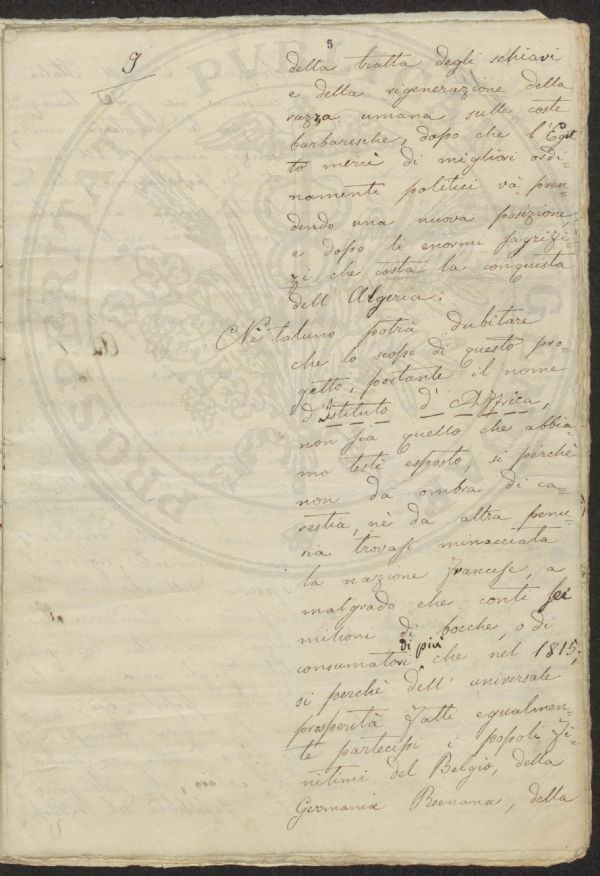 9
5
della tratta degli schiavi
e della rigenerazione della
razza umana sulle coste
barbaresche, dopo che l'Egit
to mercè di migliori ordi-
namenti politici và pren-
dendo una nuova posizione,
e dopo li enormi sagrifi-
zi che costa la conquista
dell'Algeria.
Nè taluno potrà dubitare
che lo scopo di questo pro-
getto, portante il nome
d'Istituto d'Affrica,
non sia quello che abbia-
mo testè esposto, si perchè
non da ombra di ca-
restia, nè da altra penu-
ria trovasi minacciata
la nazione francese, a
malgrado che conti sei
milioni di bocche, o di
consumatori di più che nel 1815;
si perchè dell'universale
prosperità fatti egualmen-
te partecipi i popoli fi-
nitimi del Belgio, della
Germania Renana, della
PROSPERITATI PUBLICAE